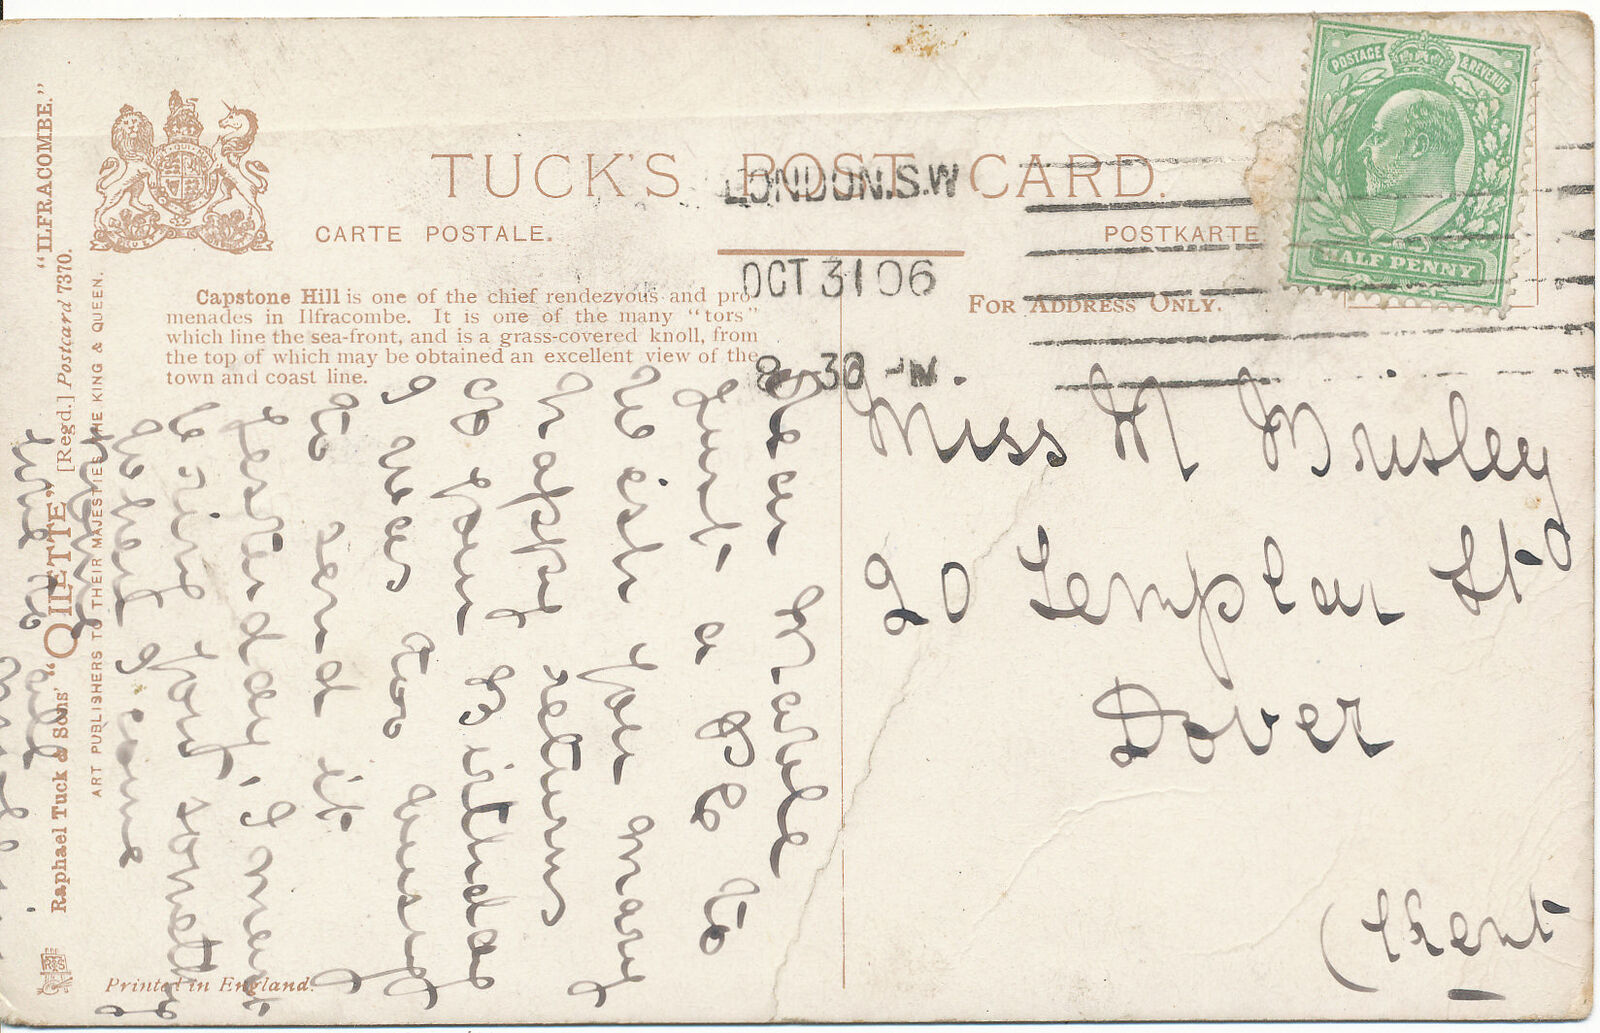 TUCK'S POST CARD.
CARTE POSTALE.
POSTKARTE
FOR ADDRESS ONLY.
POSTAGE & REVENUE
HALF PENNY
LONDON.S.W
OCT 31 06
8 30 PM
"ILFRACOMBE."
Raphael Tuck & Sons' "OILETTE" [Regd.] Postcard 7370.
ART PUBLISHERS TO THEIR MAJESTIES THE KING & QUEEN.
Capstone Hill is one of the chief rendezvous and pro-
menades in Ilfracombe. It is one of the many "tors"
which line the sea-front, and is a grass-covered knoll, from
the top of which may be obtained an excellent view of the
town and coast line.
Printed in England.
Dear
Just a P C to
wish you many
happy returns
of your Birthday
I was too busy
to send it
yesterday, I mean
to give you something
when I come
home
love to
all
Miss M Brisley
20 Templar St
Dover
(Kent